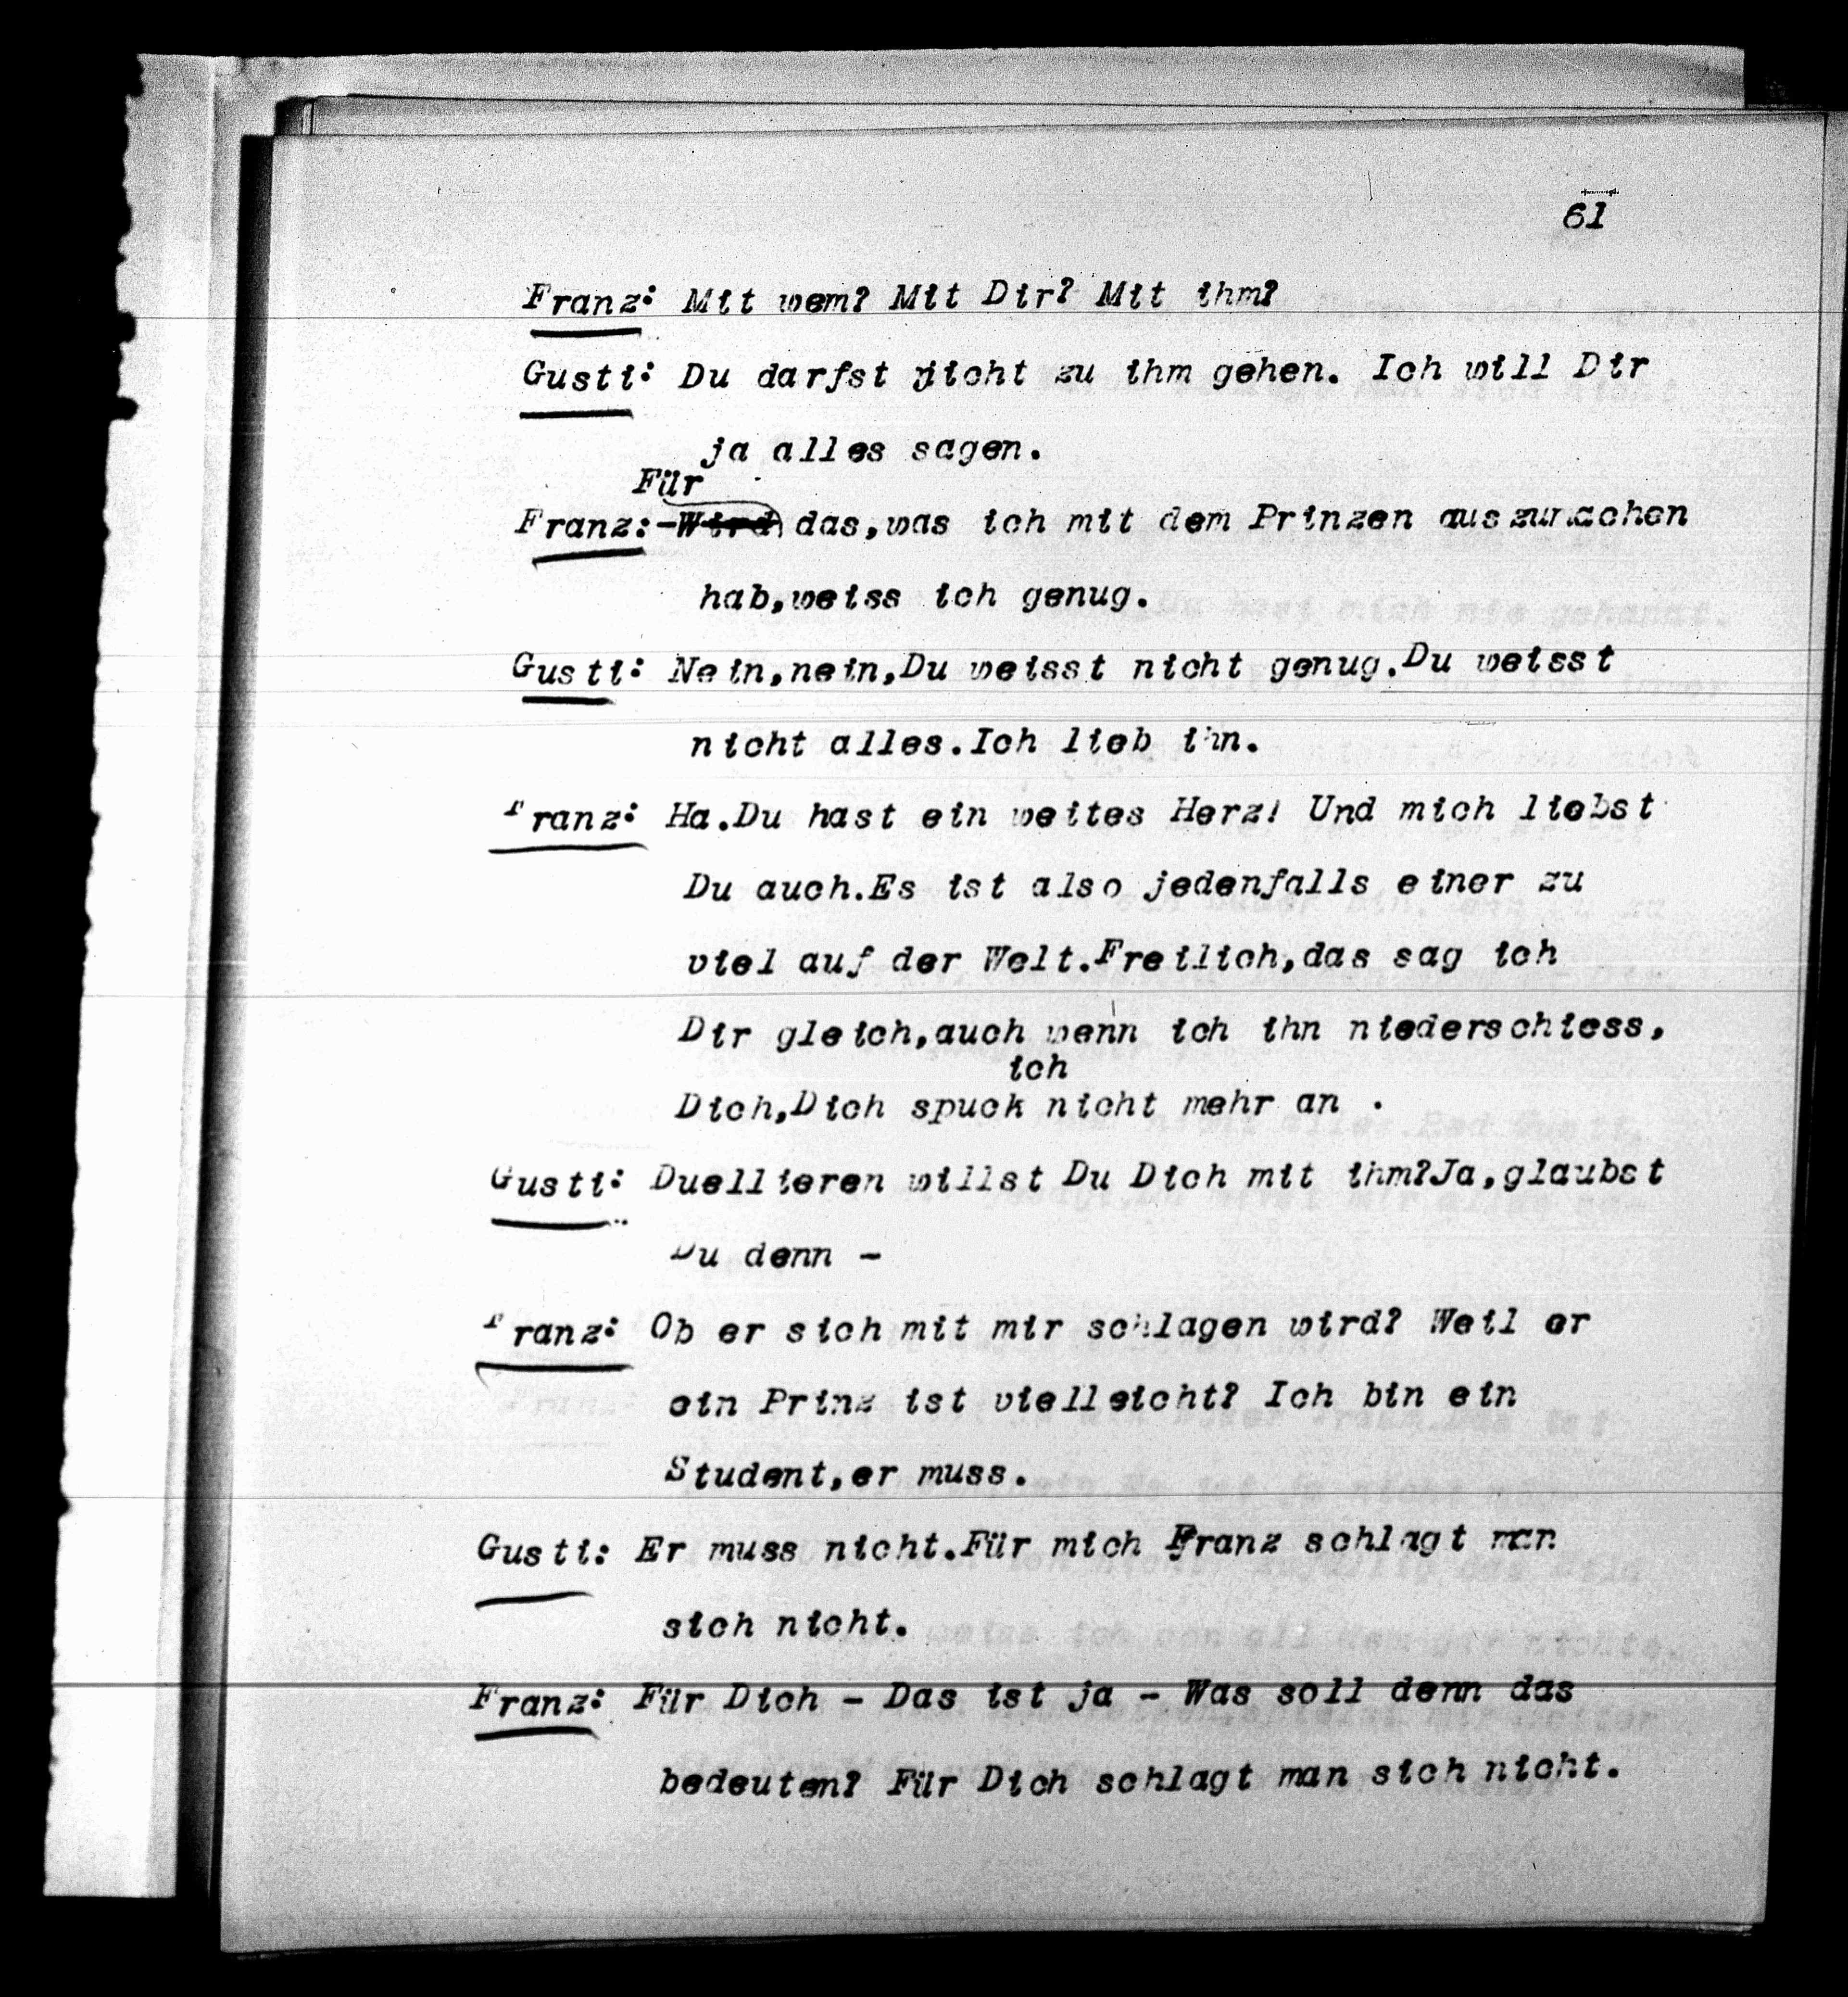 61
Franz: Mit wem? Mit Dir? Mit ihm?
Gusti: Du darfst nicht zu ihm gehen. Ich will Dir
ja alles sagen.
Für
Franz:-Wird das,was ich mit dem Prinzen auszumachen
hab,weiss ich genug.
Gusti: Nein,nein,Du weisst nicht genug.Du weisst
nicht alles.Ich lieb ihn.
Franz: Ha.Du hast ein weites Herz! Und mich liebst
Du auch.Es ist also jedenfalls einer zu
viel auf der Welt.Freilich,das sag ich
Dir gleich,auch wenn ich ihn niederschiess,
ich
Dich,Dich spuck nicht mehr an .
Gusti: Duellieren willst Du Dich mit ihm?Ja,glaubst
Du denn -
Franz: Ob er sich mit mir schlagen wird? Weil er
ein Prinz ist vielleicht? Ich bin ein
Student,er muss.
Gusti: Er muss nicht.Für mich Franz schlagt man
sich nicht.
Franz: Für Dich - Das ist ja - Was soll denn das
bedeuten? Für Dich schlagt man sich nicht.